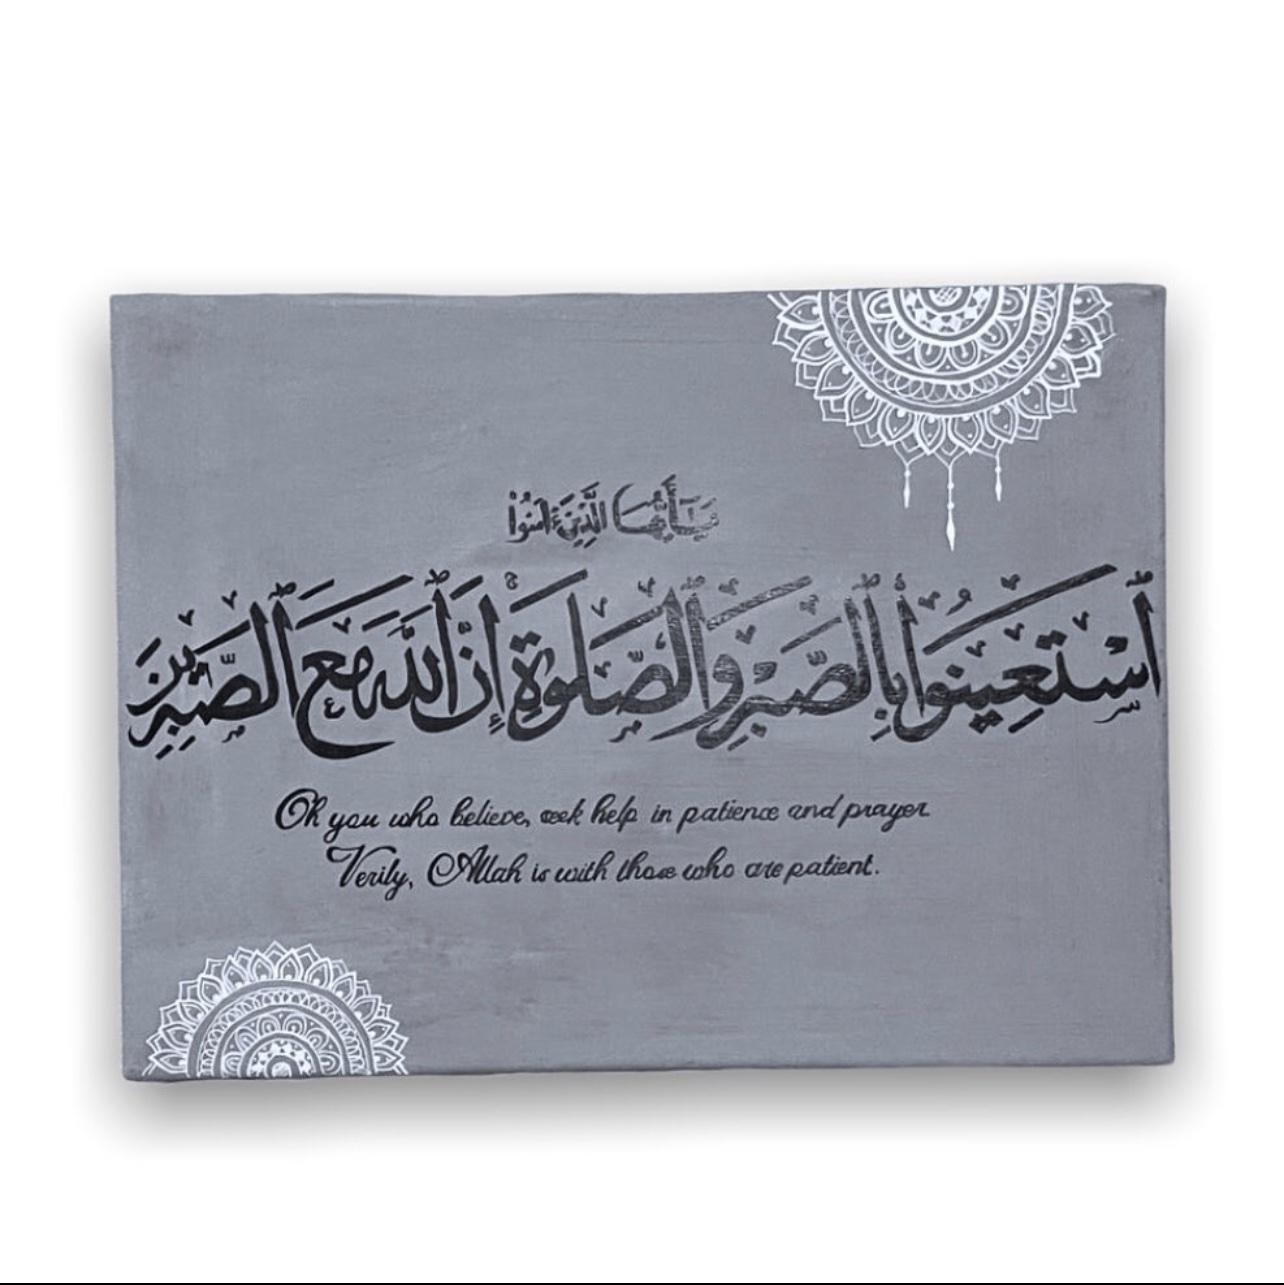 يَٰٓأَيُّهَا الَّذِينَ ءَامَنُوا۟
ٱسْتَعِينُوا۟ بِٱلصَّبْرِ وَٱلصَّلَوٰةِ إِنَّ ٱللَّهَ مَعَ ٱلصَّٰبِرِينَ
Oh you who believe, seek help in patience and prayer
Verily, Allah is with those who are patient.